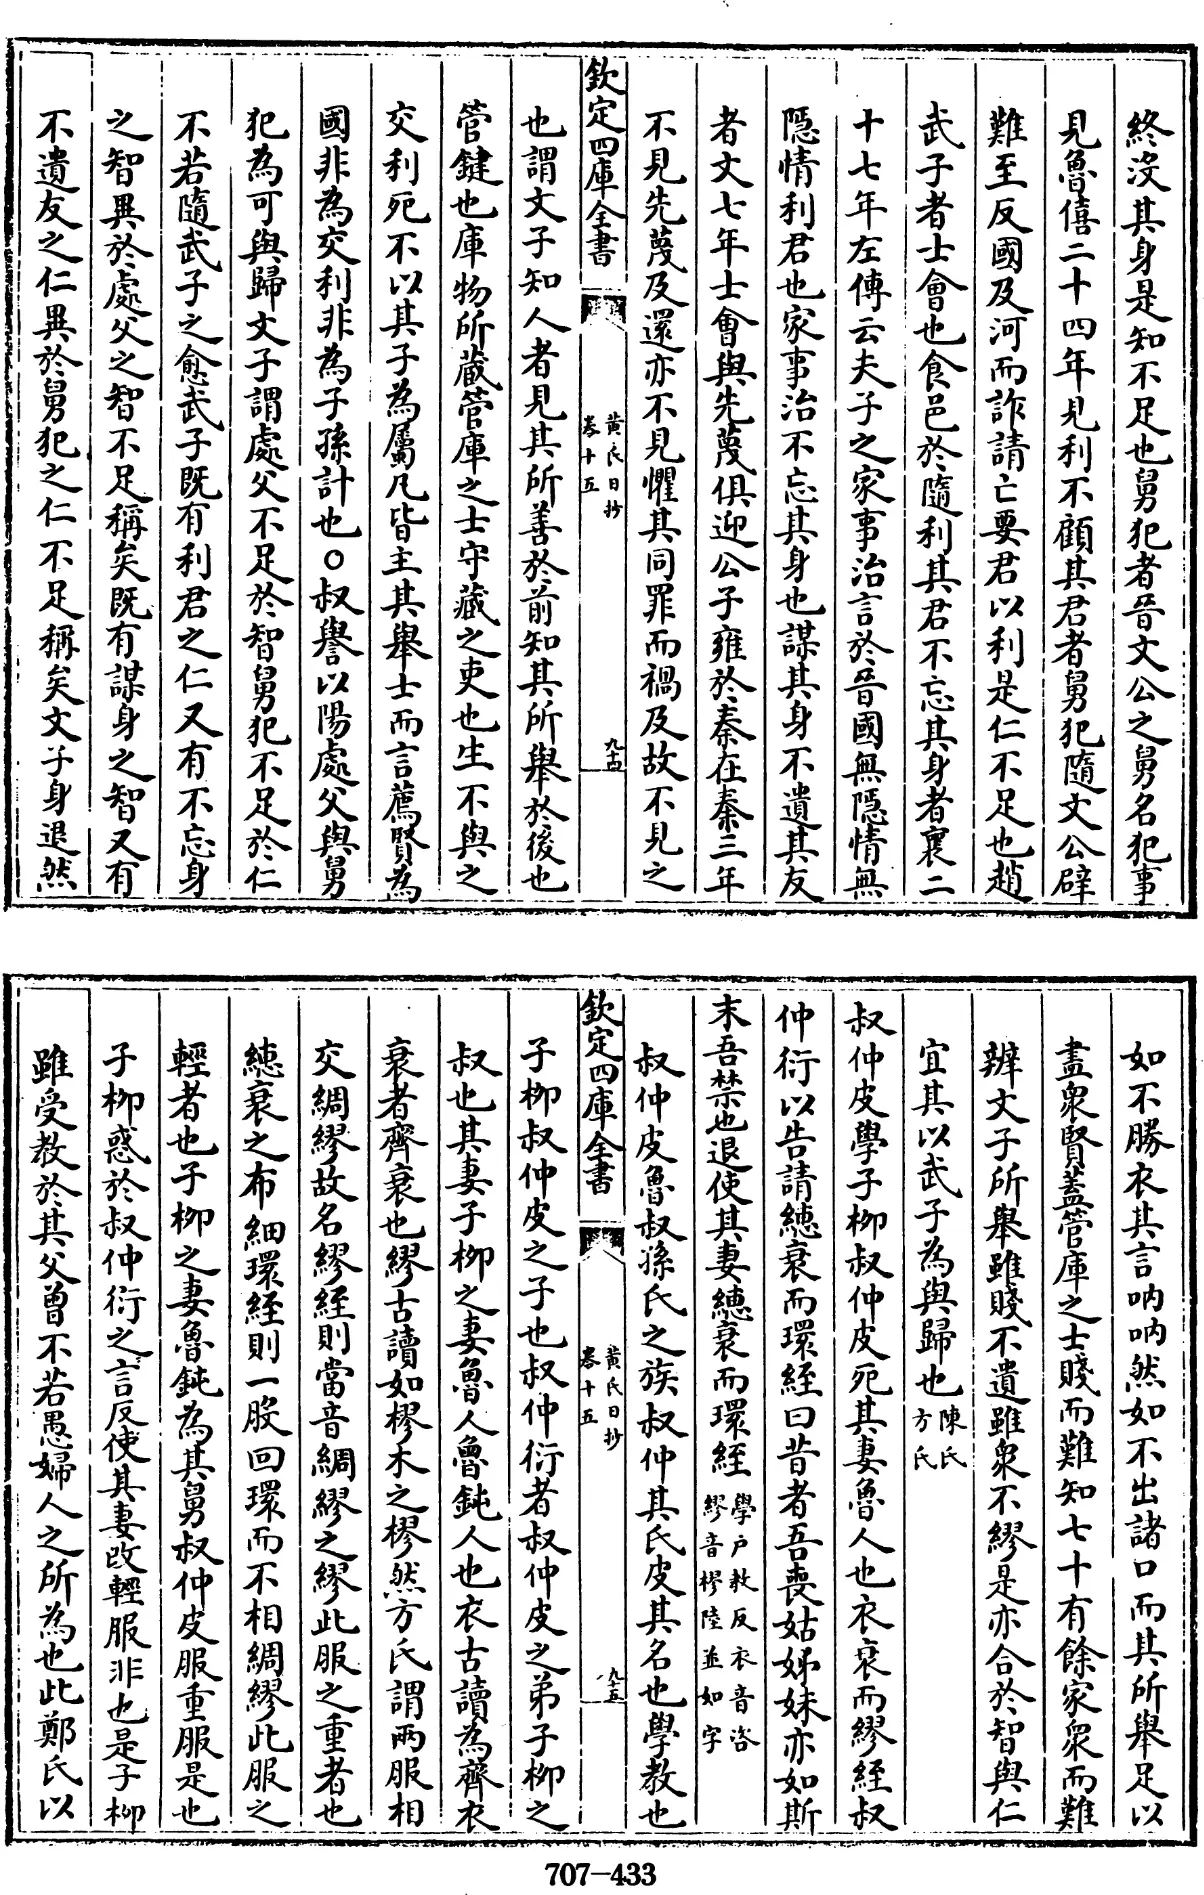 終没其身是知不足也舅犯者晉文公之舅名犯事
見魯僖二十四年見利不顧其君者舅犯隨文公辟
難至反國及河而詐請亡要君以利是仁不足也趙
武子者士會也食邑於隨利其君不忘其身者襄二
十七年左傳云夫子之家事治言於晉國無隱情無
隱情利君也家事治不忘其身也謀其身不遺其友
者文七年士會與先蔑俱迎公子雍於秦在秦三年
不見先蔑及還亦不見懼其同罪而禍及故不見之
欽定四庫全書
黃氏日抄
卷十五
九十四
也謂文子知人者見其所善於前知其所舉於後也
管鍵也庫物所蔵管庫之士守蔵之吏也生不與之
交利死不以其子為屬凡皆主其舉士而言薦賢為
國非為交利非為子孫計也○叔譽以陽處父與舅
犯為可與歸文子謂處父不足於智舅犯不足於仁
不若隨武子之愈武子既有利君之仁又有不忘身
之智異於處父之智不足稱矣既有謀身之智又有
不遺友之仁異於舅犯之仁不足稱矣文子身退然
如不勝衣其言吶吶然如不出諸口而其所舉足以
盡衆賢蓋管庫之士賤而難知七十有餘家衆而難
辨文子所舉雖賤不遺雖衆不繆是亦合於智與仁
宜其以武子為與歸也陳氏
方氏
叔仲皮學子柳叔仲皮死其妻魯人也衣衰而繆絰叔
仲衍以告請繐衰而環絰曰昔者吾喪姑姊妹亦如斯
末吾禁也退使其妻繐衰而環絰學户教反衣音咨
繆音樛陸並如字
叔仲皮魯叔孫氏之族叔仲其氏皮其名也學教也
欽定四庫全書
黃氏日抄
卷十五
九十五
子柳叔仲皮之子也叔仲衍者叔仲皮之弟子柳之
叔也其妻子柳之妻魯人魯鈍人也衣古讀為齊衣
衰者齊衰也繆古讀如樛木之樛然方氏謂兩服相
交綢繆故名繆絰則當音綢繆之繆此服之重者也
繐衰之布細環絰則一股回環而不相綢繆此服之
輕者也子柳之妻魯鈍為其舅叔仲皮服重服是也
子柳惑於叔仲衍之言反使其妻改輕服非也是子柳
雖受教於其父曾不若愚婦人之所為也此鄭氏以
707-433